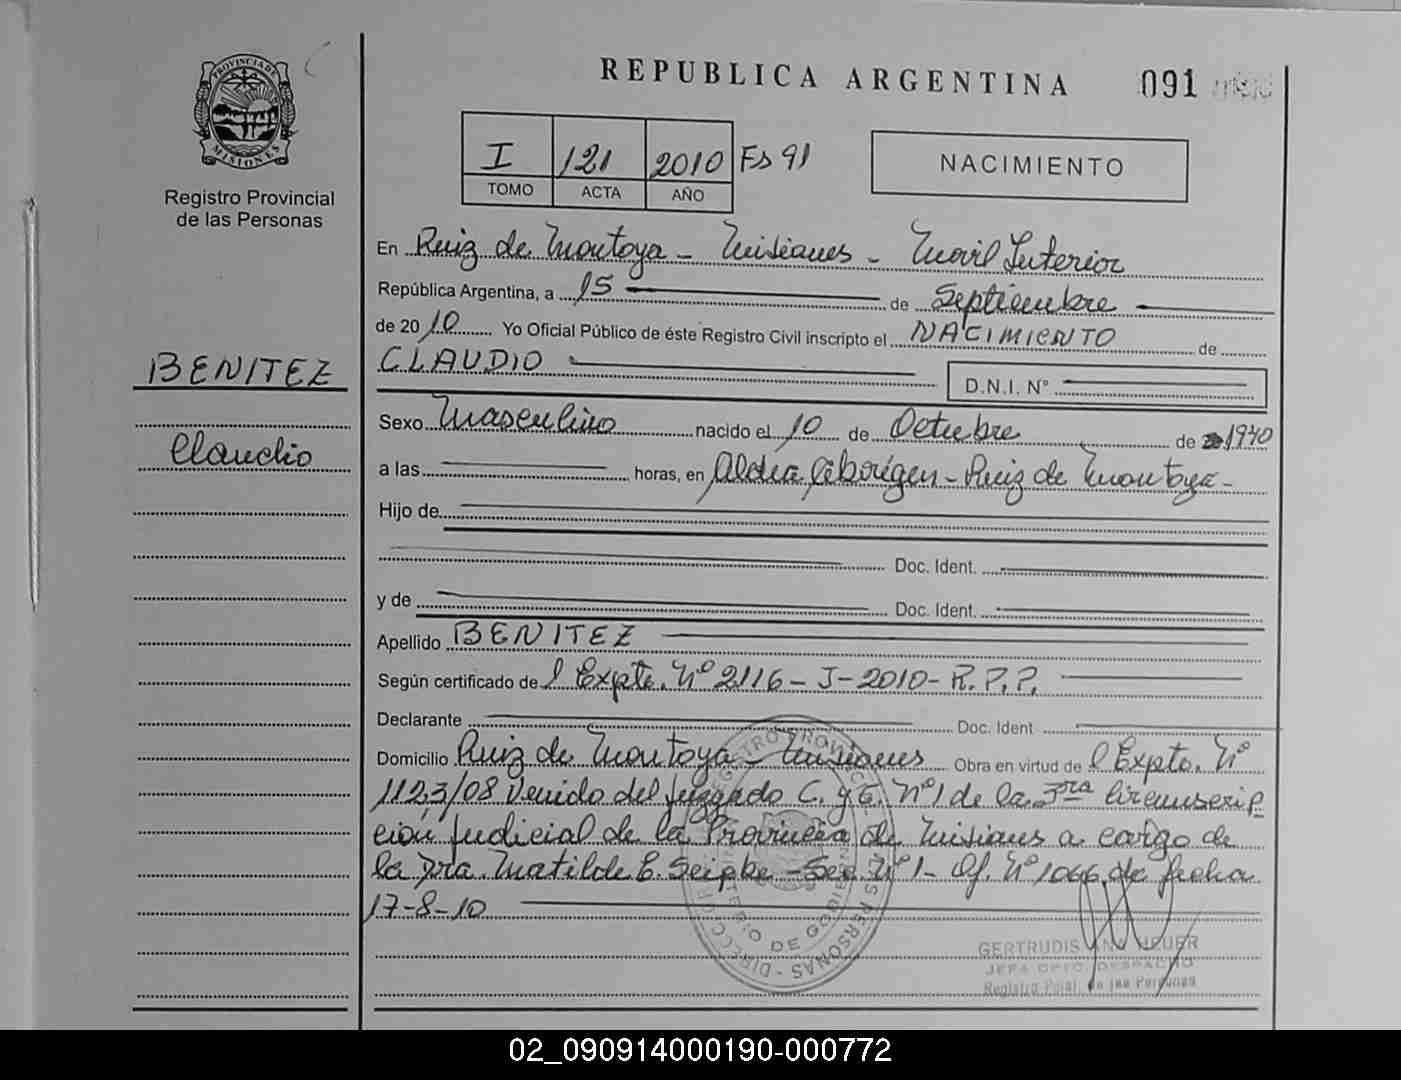 REPUBLICA ARGENTINA 091
PROVINCIA DE MISIONES
Registro Provincial
de las Personas
I 121 2010 Fs 91
TOMO ACTA AÑO
NACIMIENTO
En Ruiz de Montoya - Misiones - Movil Interior
República Argentina, a 15 de Septiembre
de 2010 Yo Oficial Público de éste Registro Civil inscripto el NACIMIENTO de
BENITEZ
CLAUDIO
D.N.I. Nº
Claudio
Sexo Masculino nacido el 10 de Octubre de 1940
a las horas, en Aldea Aborigen - Ruiz de Montoya -
Hijo de
Doc. Ident.
y de Doc. Ident.
Apellido BENITEZ
Según certificado de l Expte. Nº 2116 - J - 2010 - R.P.P.
Declarante Doc. Ident
Domicilio Ruiz de Montoya - Misiones Obra en virtud de l Expto. Nº
1123/08 Venido del Juzgado C. y C. Nº1 de la 3ra Circunscrip
ción Judicial de la Provincia de Misiones a cargo de
la Dra. Matilde E. Seipke - Sec Nº 1 - Of. Nº 1066 de fecha
17-8-10
GERTRUDIS ANA HEUER
JEFA DPTO. DESPACHO
Registro Pcial. de las Personas
02_090914000190-000772